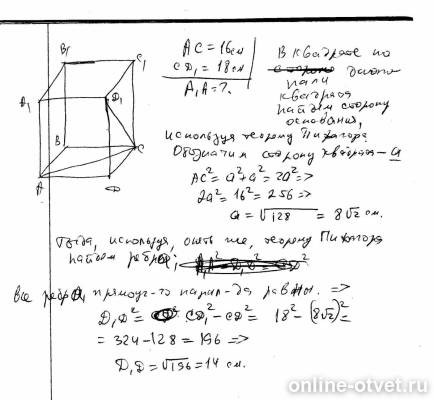 B₁
C₁
A₁
D₁
B
C
A
D
AC = 16 см
CD₁ = 18 см
A₁A = ?
В квадрате по
диаго
нали
квадрата
найдем сторону
основания,
используя теорему Пифагора
Обозначим сторону квадрата - a
AC² = a² + a² = 2a² =>
2a² = 16² = 256 =>
a = √128 = 8√2 см.
Тогда, используя, опять же, теорему Пифагора
найдем ребро;
Все ребра прямоуг-го парал-да равны. =>
D₁D² = CD₁² - CD² = 18² - (8√2)² =
= 324 - 128 = 196 =>
D₁D = √196 = 14 см.
online-otvet.ru